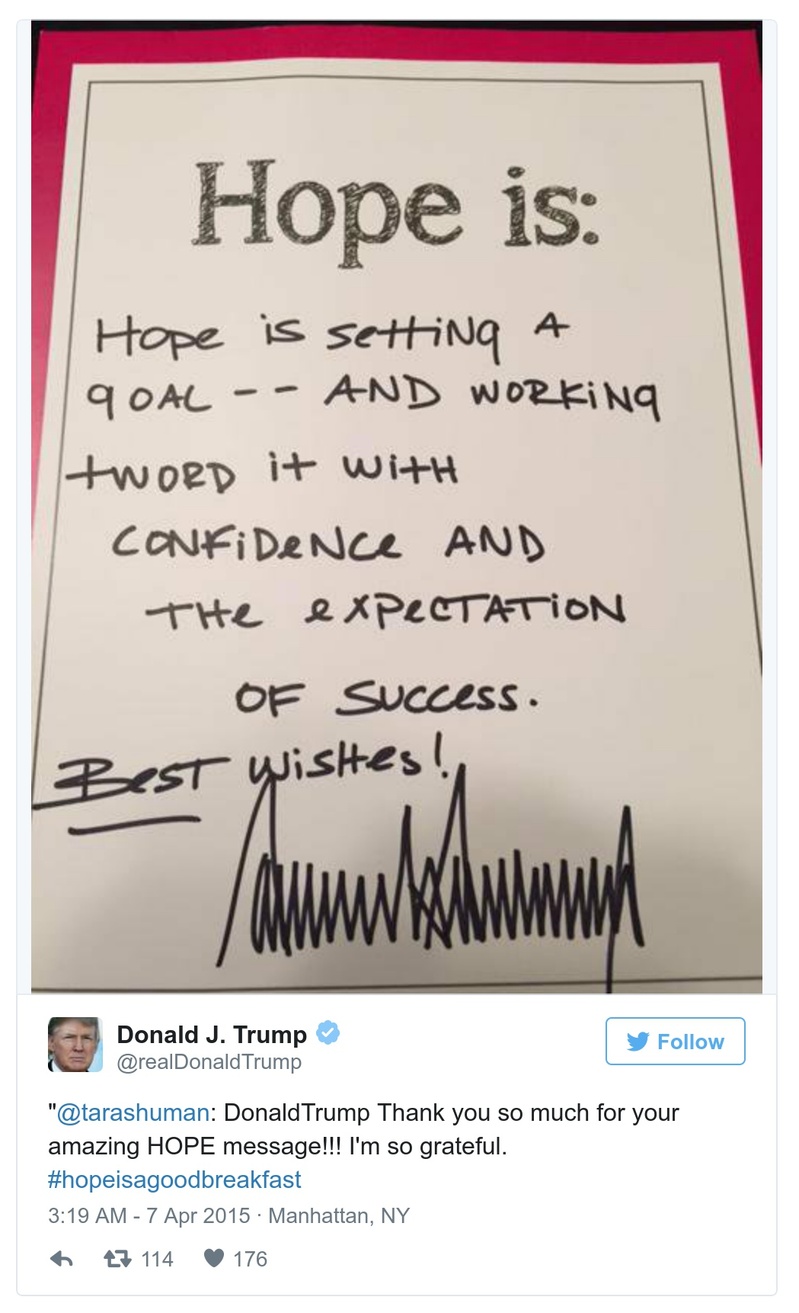 Hope is:
Hope is setting A
gOAL -- AND WORKiNg
tWORD it WitH
CONFiDeNCe AND
THe eXPeCTATiON
OF SUCCess.
BesT WisHes!
Donald J. Trump
@realDonaldTrump
Follow
"@tarashuman: DonaldTrump Thank you so much for your
amazing HOPE message!!! I'm so grateful.
#hopeisagoodbreakfast
3:19 AM - 7 Apr 2015 · Manhattan, NY
114 176